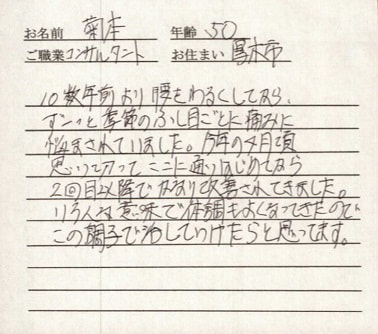 お名前 菊本 年齢 50
ご職業 コンサルタント お住まい 厚木市
10数年前より腰をわるくしてから、
ずーっと季節のふし目ごとに痛みに
悩まされていました。今年の4月頃
思い切ってここに通いはじめてから
2回目以降でかなり改善されてきました。
いろんな意味で体調もよくなってきたので
この調子で治していけたらと思ってます。